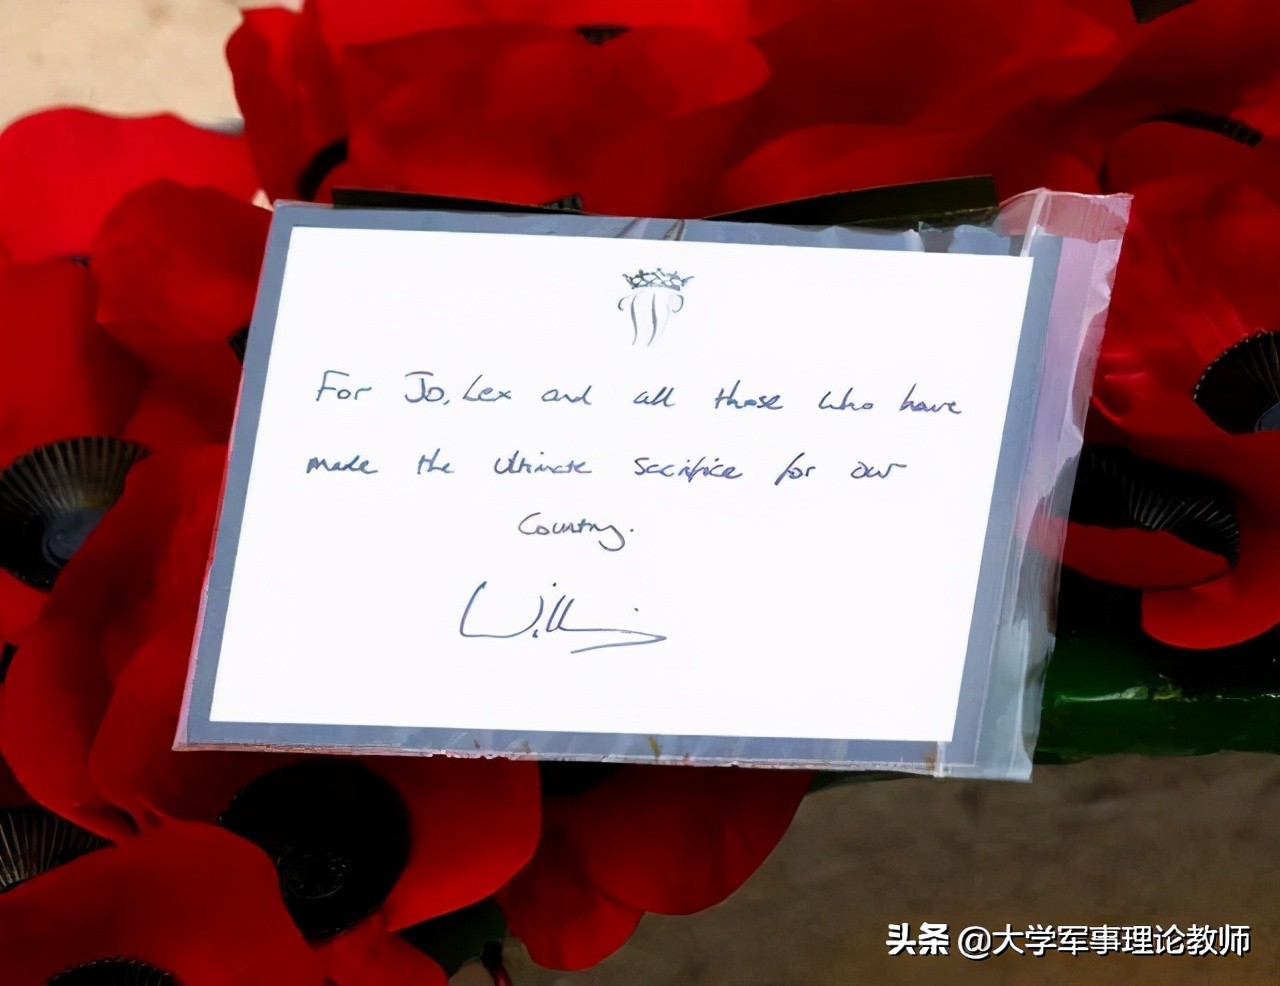 For Jo, Lex and all those who have
made the ultimate sacrifice for our
Country.
William
头条 @大学军事理论教师